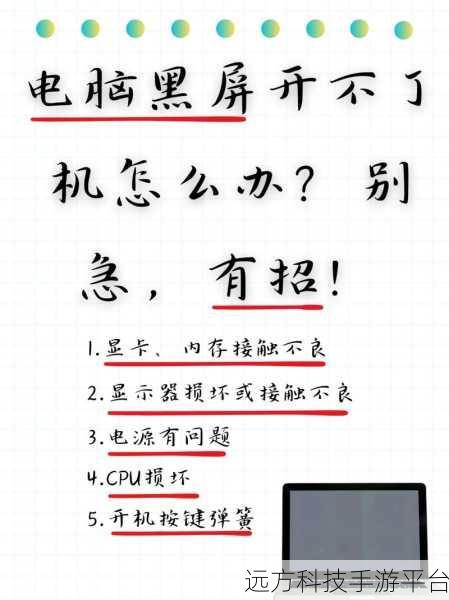 电脑黑屏开不了
机怎么办？别
急，有招！
1.显卡、内存接触不良
2.显示器损坏或接触不良
3.电源有问题
4.CPU损坏
5.开机按键弹簧
远方科技手游平台